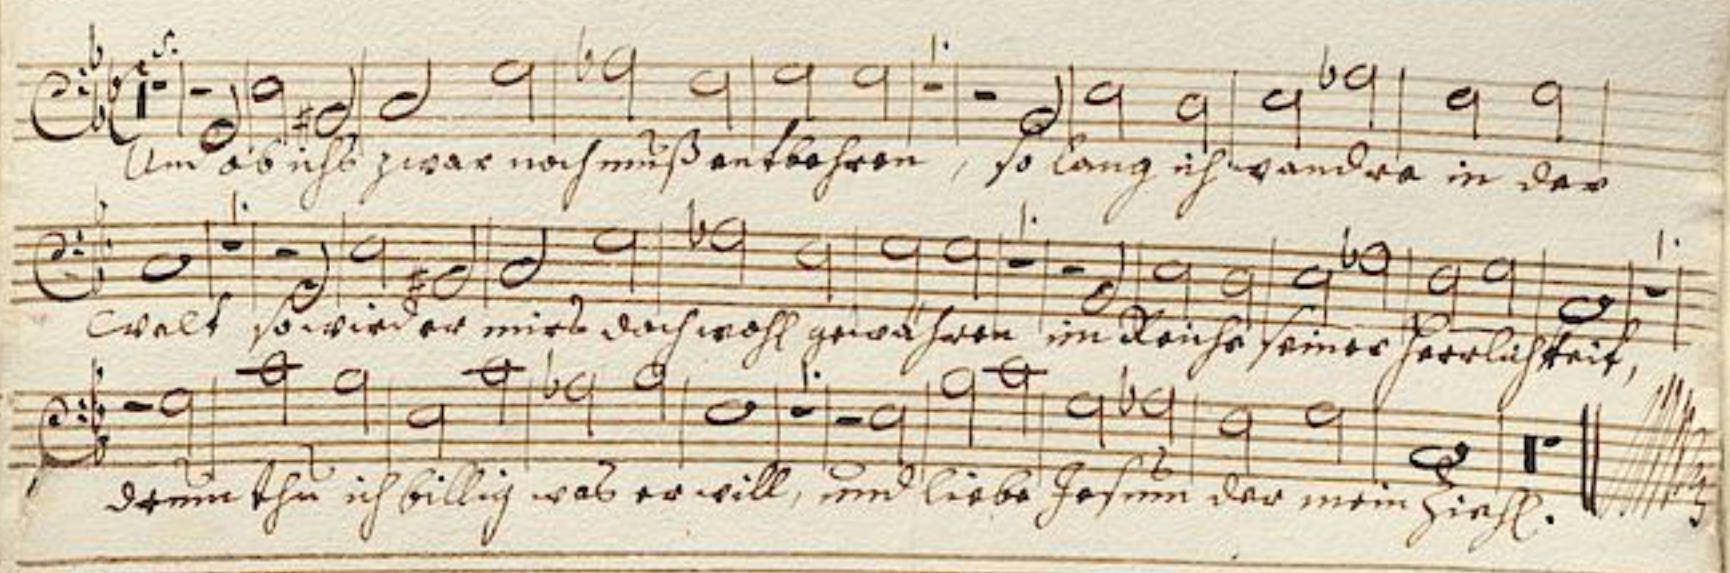 Und ob ichs zwar noch muß entbehren, so lang ich wandre in der
Welt so wird er mirs doch wohl gewähren im Reiche seiner Herrlichkeit,
drum thu ich billig was er will, und liebe Jesum der mein Ziehl.